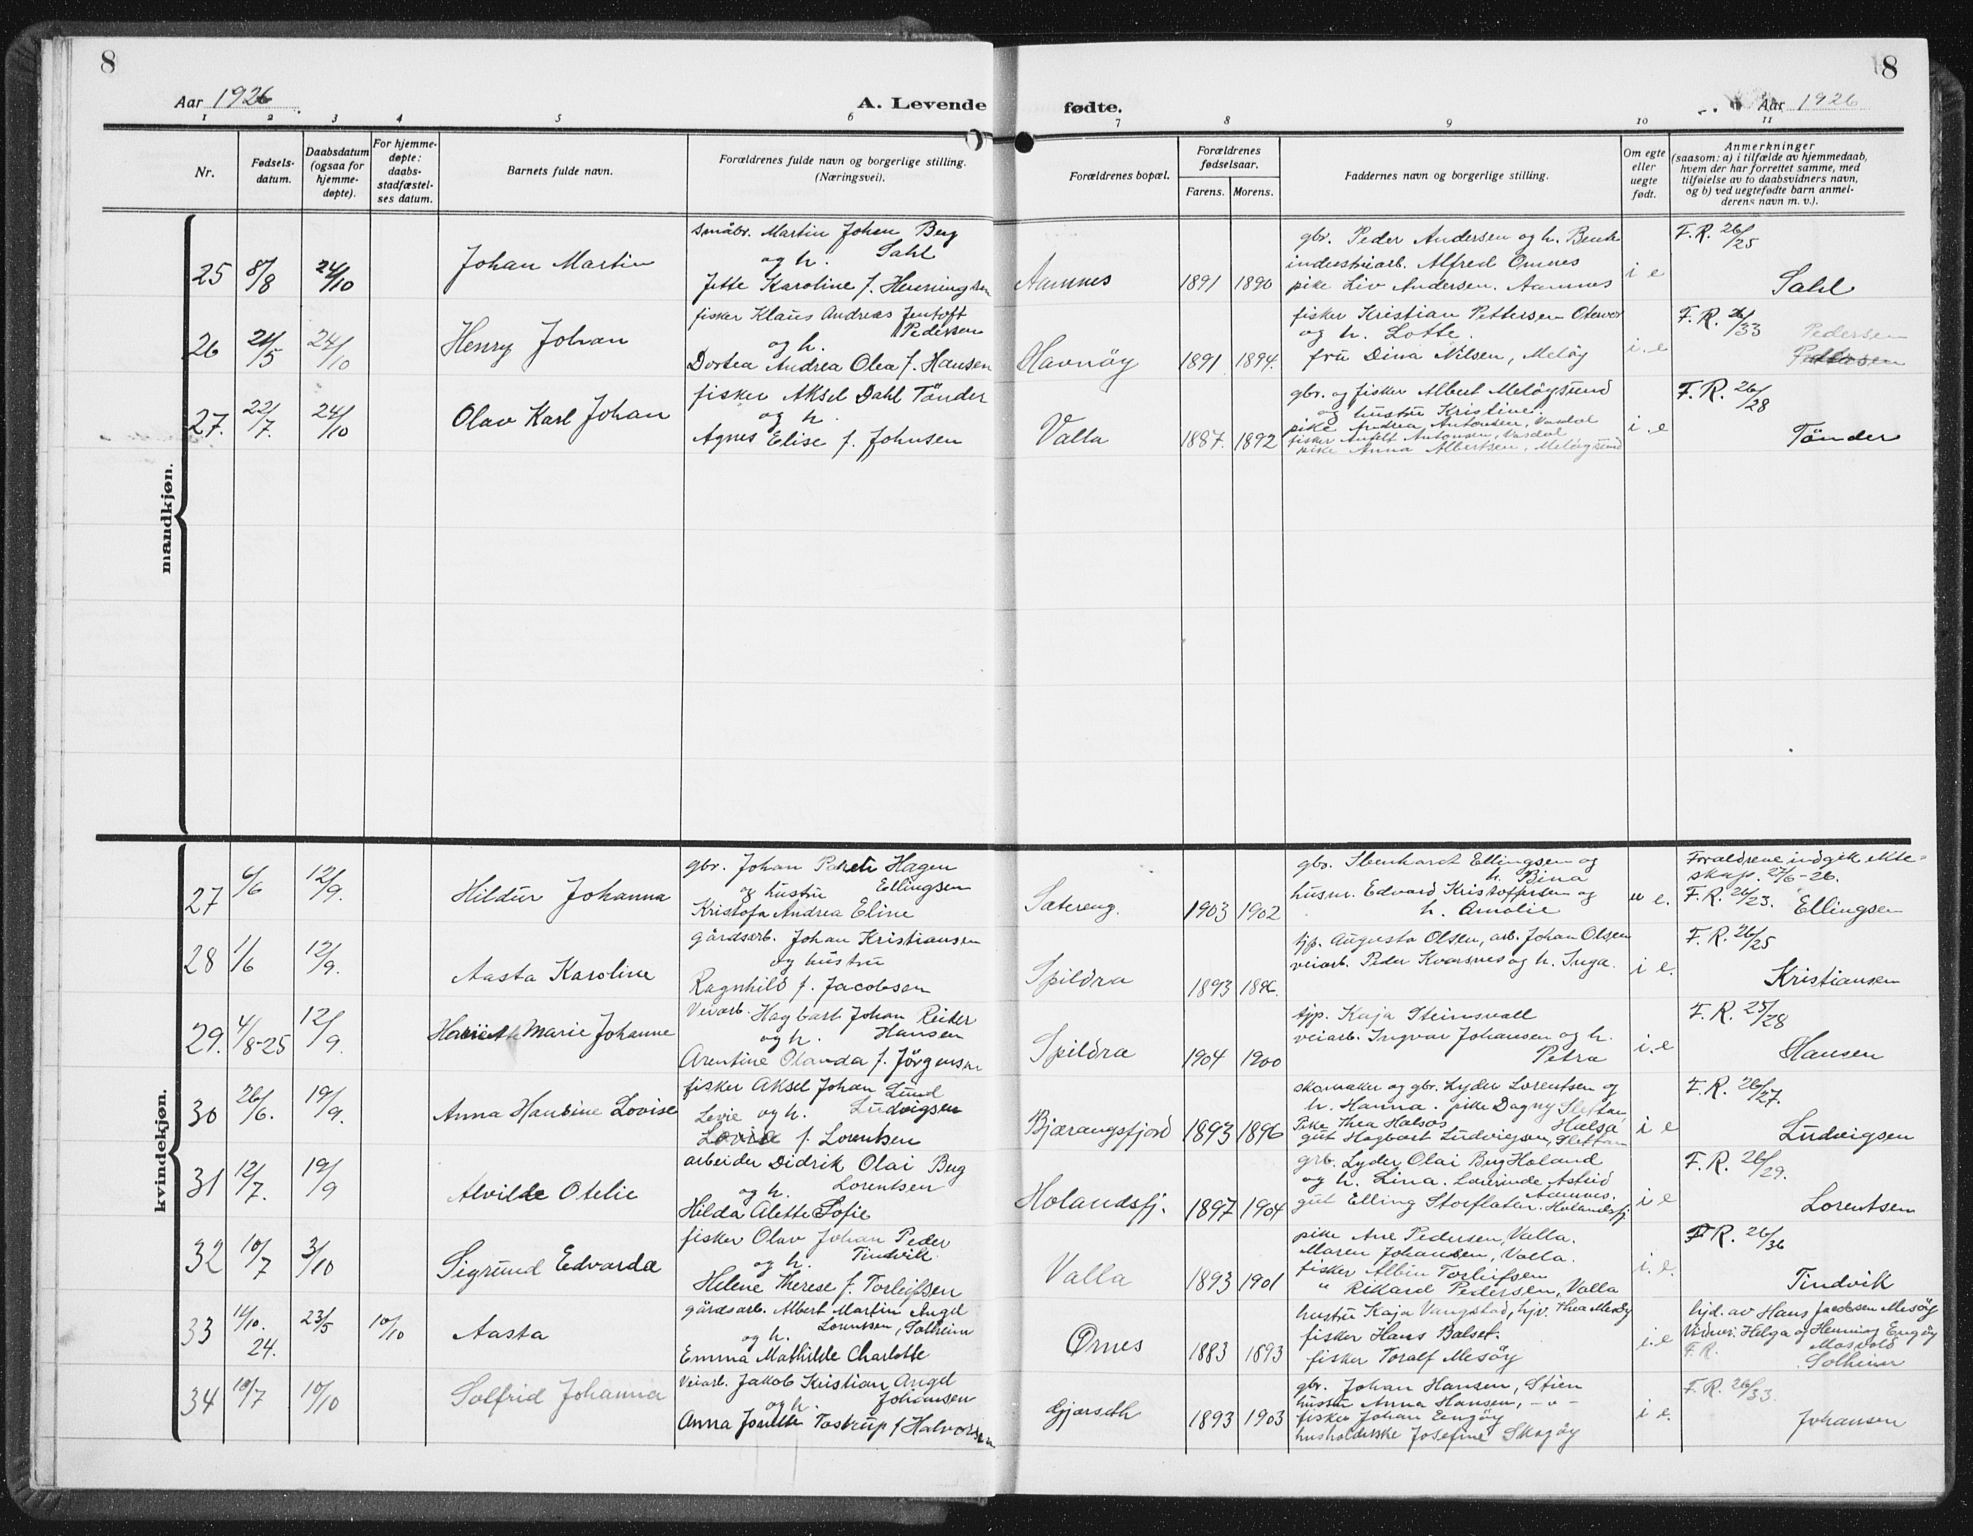 8
8
Aar 1926
A. Levende fødte.
Aar 1926
1 2 3 4 5 6 7 8 9 10 11
Nr.
Fødsels-
datum.
Daabsdatum
(ogsaa for
hjemme-
døpte).
For hjemme-
døpte:
daabs-
stadfæstel-
ses datum.
Barnets fulde navn.
Forældrenes fulde navn og borgerlige stilling.
(Næringsvei).
Forældrenes bopæl.
Forældrenes
fødselsaar.
Farens. Morens.
Faddernes navn og borgerlige stilling.
Om egte
eller
uegte
født.
Anmerkninger
(saasom: a) i tilfælde av hjemmedaab,
hvem der har forrettet samme, med
tilføielse av to daabsvidners navn,
og b) ved uegtefødte barn anmel-
derens navn m. v.).
mandkjøn.
25 8/8 24/10 Johan Martin
småbr. Martin Johan Berg
og h. Sahl
Jette Karoline f. Henningsen
Aamnes 1891 1890
gbr. Peder Andersen og h. Benk
industriarb. Alfred Ømnes
pike Liv Andersen. Aamnes
i e
F.R. 26/25
Sahl
26 21/5 24/10 Henry Johan
fisker Klaus Andreas Jentoft
Pedersen
og h.
Dortea Andrea Olea f. Hansen
Havnöy 1891 1894.
fisker Kristian Pettersen Oterver
og h. Lotte.
fru Dina Nilsen, Melöy
i. e
F.R. 26/33
Pedersen
27. 22/7. 24/10 Olav Karl Johan
fisker Aksel Dahl Tönder
og h.
Agnes Elise f. Johnsen
Valla 1887. 1892
gbr. og fisker Albert Melöysund
og hustru Kristine.
pike Andrea Antonsen, Vasdal
fisker Anfelt Antonsen, Vasdal
pike Anna Albertsen, Melöysund
i. e
F.R. 26/28
Tönder
kvindekjøn.
27 6/6 12/9. Hildur Johanna
gbr. Johan Hagen
og hustru Ellingsen
Kristofa Andrea Eline
Sætereng. 1903 1902
gbr. Stenhardt Ellingsen og
h. Bina
husm. Edvard Kristoffersen og
h. Amalie
u e.
Forældrene indgik ekte-
skap. 27/6-26.
F.R. 26/23. Ellingsen
28 1/6 12/9. Aasta Karoline
gårdsarb. Johan Kristiansen
og hustru
Ragnhild f. Jacobsen
Spildra 1893 1896.
tjp. Augusta Olsen, arb. Johan Olsen
veiarb. Peder Kvarsnes og h. Inga.
i e.
F.R. 26/25
Kristiansen
29. 4/8-25 12/9. Marie Johanne
Veiarb. Hagbart Johan Reider
og h. Hansen
Arentine Olanda f. Jörgensen
Spildra 1904 1900
tjp. Kaja Steinsvall
veiarb. Ingvar Johansen og h.
Petra
i. e
F.R. 25/28
Hansen
30 26/6. 19/9. Anna Hansine Lovise
fisker Aksel Johan Lund
Levie og h. Ludvigsen
f. Lorentsen
Bjærangsfjord 1893 1896
skomaker og gbr. Lyder Lorentsen og
h. Hanna. pike Dagny
Pike Thea Halsos Halsa
gut Hagbart Ludvigsen,
i e
F.R. 26/27.
Ludvigsen
31 12/7. 19/9 Alvilde Otelie
arbeider Didrik Olai Berg
og h. Lorentsen
Hilda Alette Sofie
Holandsfj. 1897 1904
grb. Lyder Olai Berg Holand
og h. Lina. Laurinde Astrid
Aamnes.
gut Elling Storflaten. Holandsfj
i e
F.R. 26/29.
Lorentsen
32 10/7 3/10 Sigrund Edvarda
fisker Olav Johan Peder
og h. Tindvik
Helene Therese f. Torleifsen
Valla 1893 1901
pike Ane Pedersen, Valla.
Maren Johansen, Valla.
fisker Albin Torleifsen
" Rikard Pedersen, Valla
i. e.
F.R. 26/36
Tindvik
33 14/10. 24. 23/5 10/10 Aasta
gårdsarb. Albert Martin Angel
og h. Lorentsen, Solheim
Emma Mathilde Charlotte
Ørnes 1883 1893
hustru Kaja Vangstad, hjv. Thea Mesöy
fisker Hans Balset.
fisker Toralf Mesöy
i. e
hjd. av Hans Jacobsen Mesöy
Vidner: Helga og Henning Engöy
Mosvold
F.R. Solheim
34 10/7 10/10 Solfrid Johanna
Veiarb. Jakob Kristian Angel
og h. Johansen
Anna Tostrup f Halvorsen
Gjærseth 1893 1903
gbr. Johan Hansen, Stien
hustru Anna Hansen, -"-
fisker Johan Engöy
husholderske Josefine Skogöy
i e.
F.R. 26/33.
Johansen